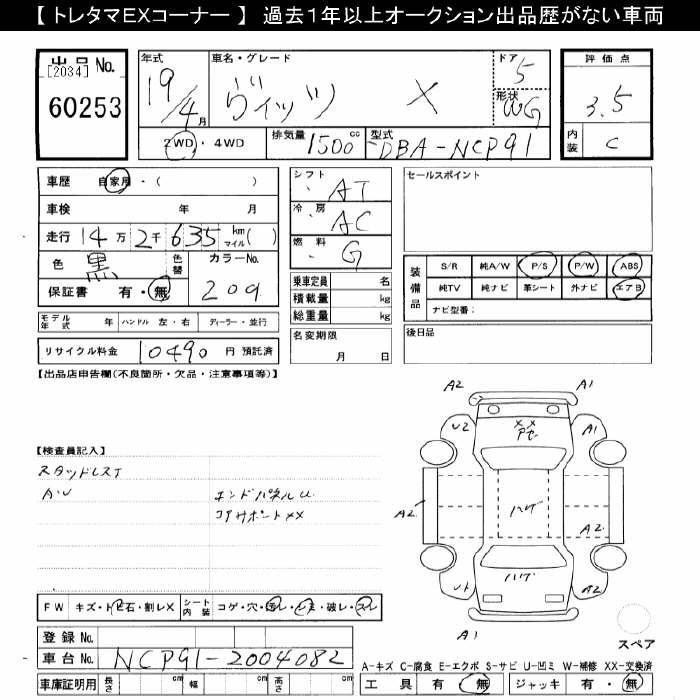 【 トレタマEXコーナー 】 過去１年以上オークション出品歴がない車両
出品No.
[2034]
60253
年式 19/4月
車名・グレード ヴィッツ X
ドア 5
形状 WG
評価点 3.5
内装 C
2WD・4WD
排気量 1500 cc
型式 DBA-NCP91
車歴 自家用・( )
車検 年 月
走行 14万2千635 km マイル( )
色 黒
色替
カラーNo. 209
保証書 有・無
シフト AT
冷房 AC
燃料 G
乗車定員 名
積載量 kg
総重量 kg
セールスポイント
装備品
S/R 純A/W P/S P/W ABS
純TV 純ナビ 革シート 外ナビ エアB
ナビ型番:
モデル年式 年 ハンドル 左・右 ディーラー・並行
リサイクル料金 10490 円 預託済
名変期限 月 日
後日品
【出品店申告欄(不良箇所・欠品・注意事項等)】
【検査員記入】
スタッドレス7
AW
エンドパネルU
コアサポートXX
A2 A1
U2 XX A1
ハゲ
A2 A2
ハゲ
A2
A1
スペア
FW キズ・トビ石・割レX
シート内装 コゲ・穴・汚レ・シミ・破レ・スレ
登録No.
車台No. NCP91-2004082
車庫証明用 長さ cm 幅 cm 高さ cm
A-キズ C-腐食 E-エクボ S-サビ U-凹ミ W-補修 XX-交換済
工具 有・無 ジャッキ 有・無